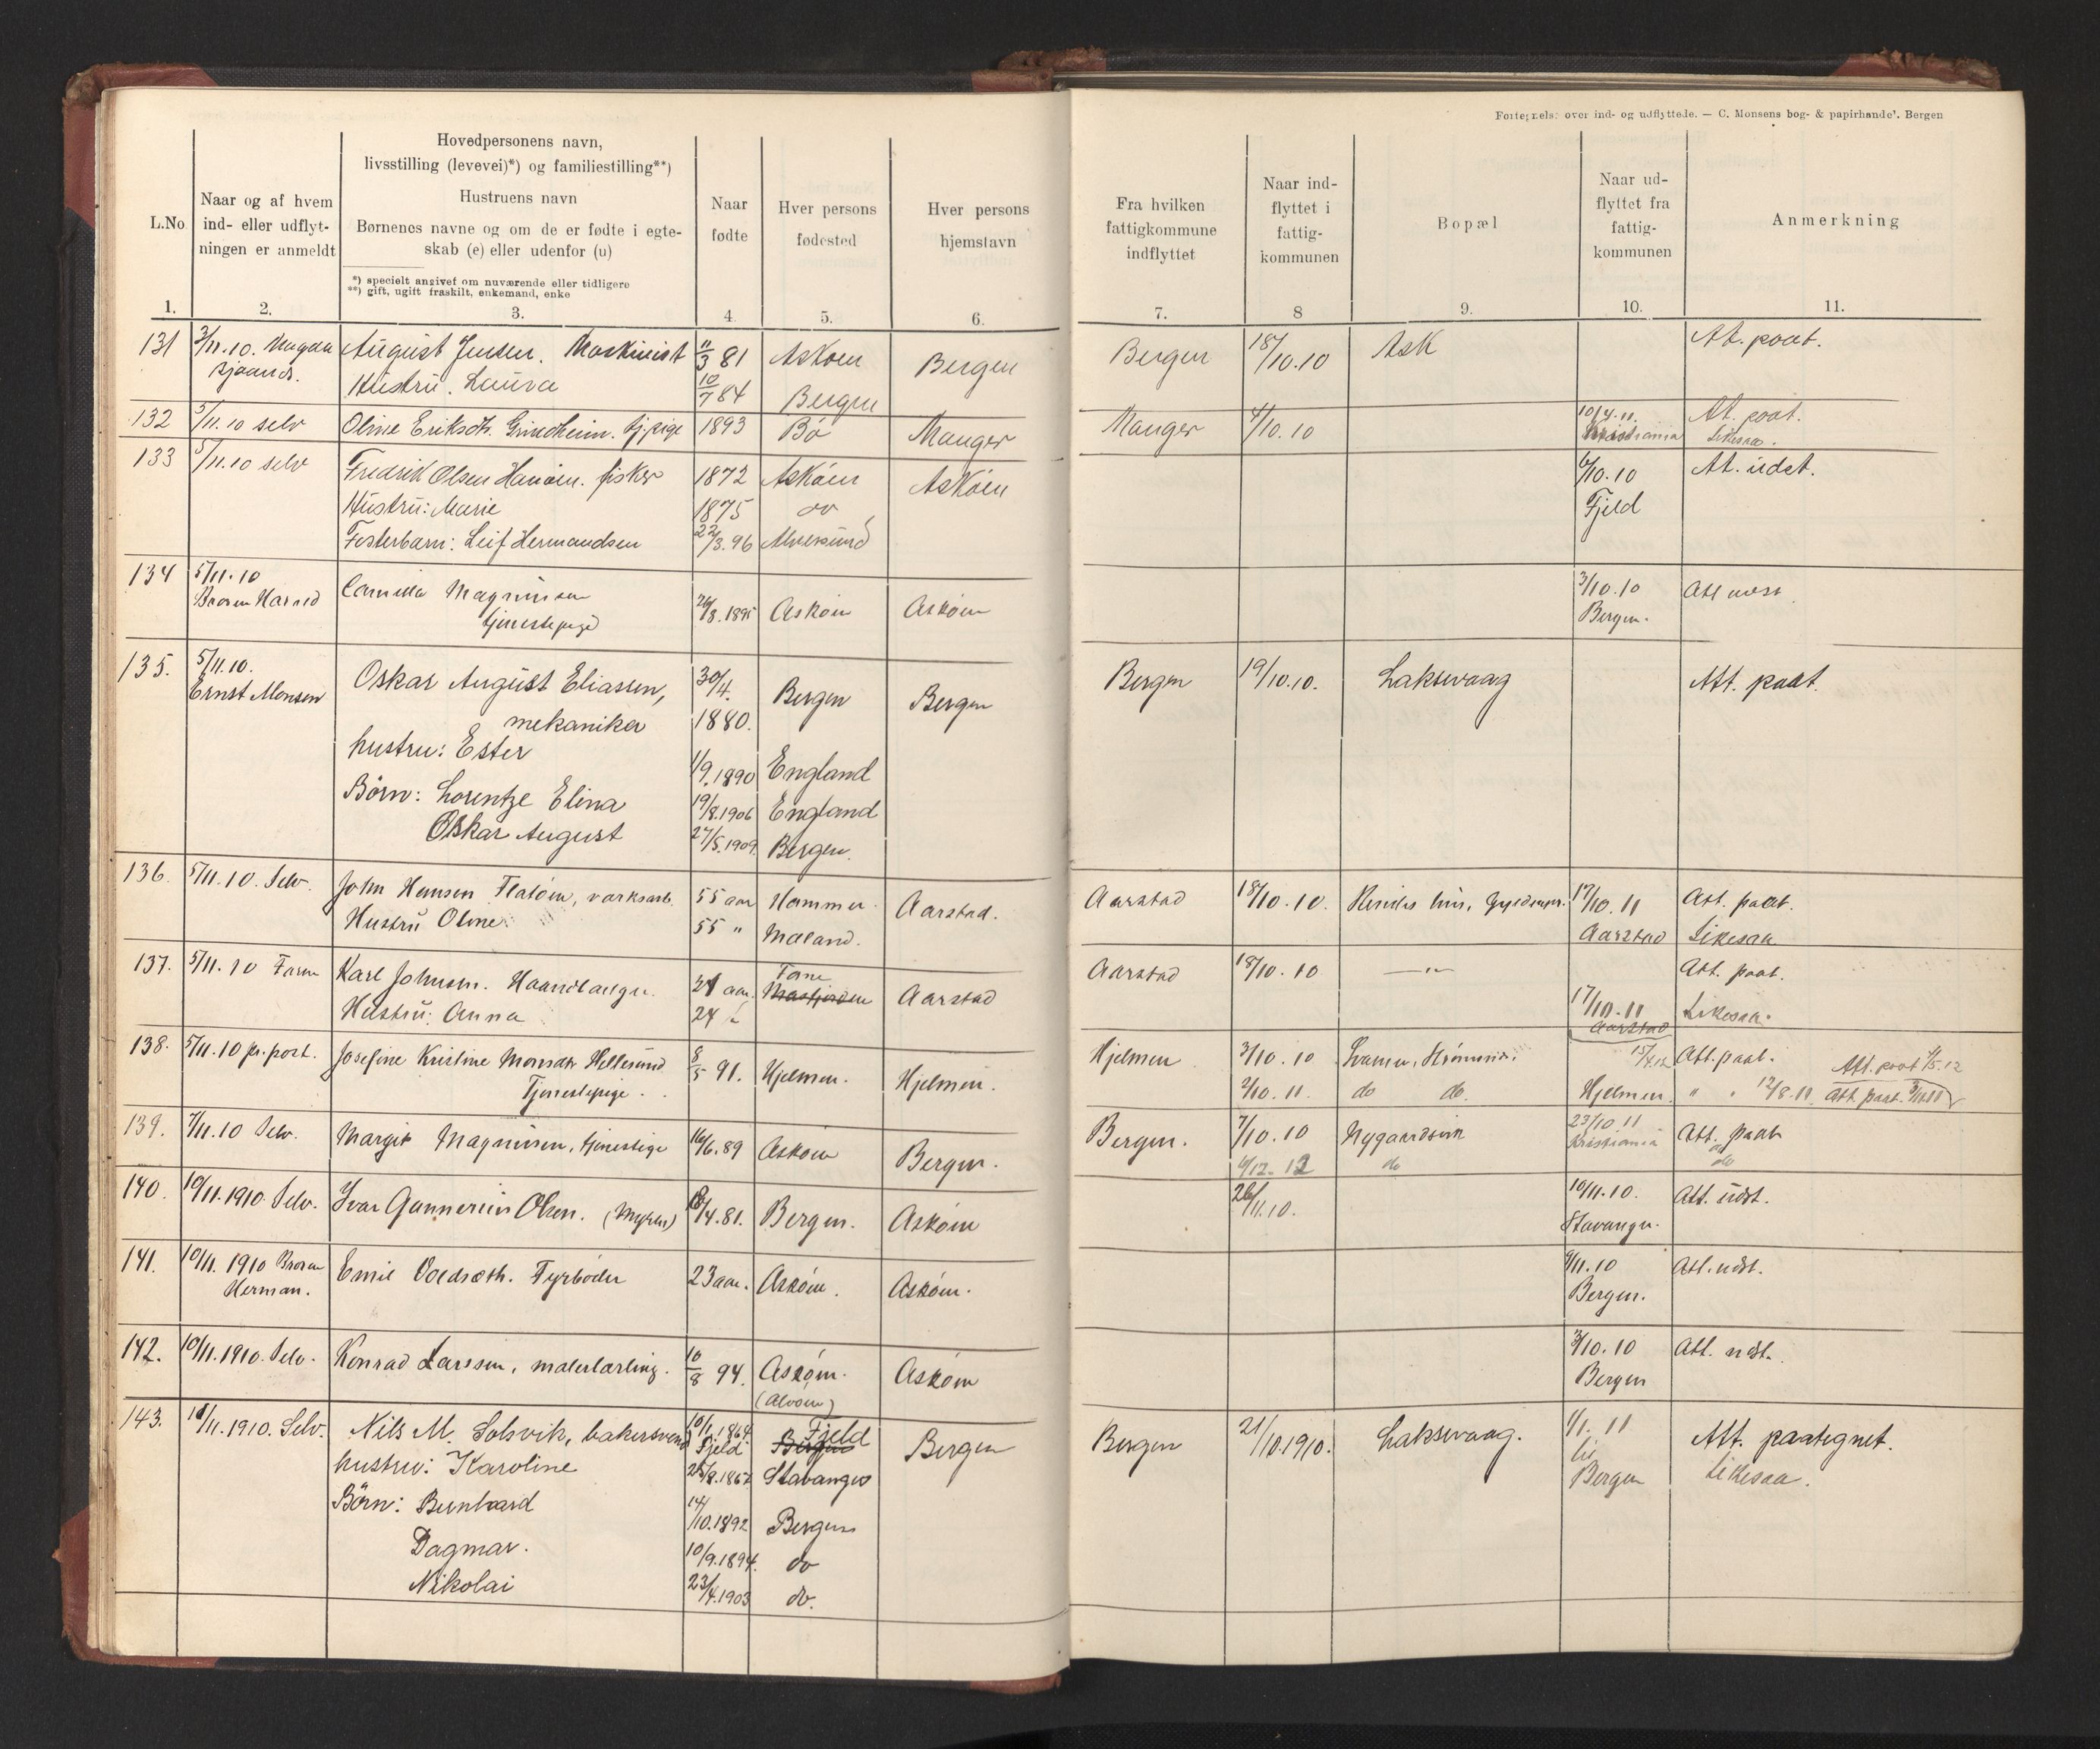 Fortegnelse over ind- og udflyttede. — C. Monsens bog- & papirhandel. Bergen
L.No
Naar og af hvem
ind- eller udflyt-
ningen er anmeldt
Hovedpersonens navn,
livsstilling (levevei)*) og familiestilling**)
Hustruens navn
Børnenes navne og om de er fødte i egte-
skab (e) eller udenfor (u)
*) specielt angivet om nuværende eller tidligere
**) gift, ugift fraskilt, enkemand, enke
Naar
fødte
Hver persons
fødested
Hver persons
hjemstavn
Fra hvilken
fattigkommune
indflyttet
Naar ind-
flyttet i
fattig-
kommunen
Bopæl
Naar ud-
flyttet fra
fattig-
kommunen
Anmerkning
1. 2. 3. 4. 5. 6. 7. 8 9. 10. 11.
131 3/11.10. August Jensen. Maskinist 11/3 81 Askøen Bergen Bergen 18/10.10 Ask At. paat.
Hustru. Laura 10/7 84 Bergen
132 5/11.10 selv Oline Eriksdtr. Grindheim. tj.pige 1893 Bø Manger Manger 4/10.10 10/4.11 At. paat.
Kristiania Likesaa.
133 5/11.10 selv Fredrik Olsen Hanøen. fisker 1872 Askøen Askøen 6/10.10 At. udst.
Hustru: Marie 1875 do Fjeld
Fosterbarn: Leif Hermandsen 22/3.96 Alversund
134 5/11.10 Camilla Magnussen 3/10.10
Broren Harald tjenestepige 26/8.1895 Askøen Askøen Bergen.
135. 5/11.10. Oskar August Eliassen, 30/4. Bergen Bergen Bergen 19/10.10. Laksevaag Att. paat.
Ernst Monsen mekaniker 1880.
hustru: Ester 1/9.1890 England
Børn: Lorentze Elina 19/8.1906 England
Oskar August 27/5.1909. Bergen.
136. 5/11.10. Selv. John Hansen Flatøen, verksarb. 55 aar Hammer Aarstad. Aarstad 18/10.10. 17/10.11 Att. paat.
Hustru Oline 55 " Maland. Aarstad Likesaa
137. 5/11.10 Karl Johnsen. Haandlanger. 28 aar. Fane Aarstad Aarstad 18/10.10 —"— Att. paat.
Masfjorden
Hustru: Anna 24 " 17/10.11 Likesaa.
Aarstad
138. 5/11.10 pr. post. Josefine Kristine Monsdtr Hellesund 8/5 91. Hjelmen. Hjelmen. Hjelmen 3/10.10 15/4.12 Att. paat. Att. paat 4/5.12
Tjenestepige. 2/10.11. do do. Hjelmen " " 12/8.11. Att. paat.
139. 7/11.10 Selv. Margit Magnussen, tjenestpige 16/6.89 Askøen Bergen. Bergen. 7/10.10 Nygaardsvik 23/10.11 Att. paat
Kristiania do
6/12.12 do
140. 10/11.1910. Selv. Ivar Gunnerius Olsen. (Myhren) 18/4.81. Bergen. Askøen 26/11.10. 10/11.10. Att. udst.
Stavanger.
141. 10/11.1910 Broren Emil Voldsæth. Fyrbøder 23 aar. Askøen. Askøen. 9/11.10 Att. udst.
Herman. Bergen.
142. 10/11.1910. Selv. Konrad Larssen, malerlærling. 10/8 94. Askøen. Askøen 3/10.10 Att. udst.
(Alvøen) Bergen
143. 11/11.1910. Selv. Nils M. Solsvik, bakersvend 10/1.1864 Fjeld Bergen Bergen 21/10.1910. Laksevaag. 1/1.11 Att. paategnet.
Fjeld Bergen til Likesaa.
hustru: Karoline 25/8.1867 Stavanger Bergen
Børn: Bernhard 14/10.1892 Bergen
Dagmar. 10/9.1894. do
Nikolai 23/4.1903 do.